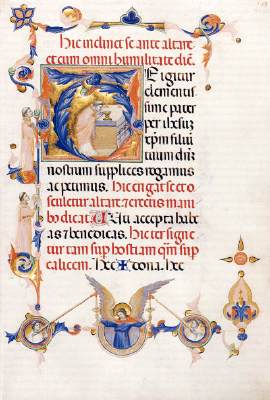 Hic inclinet se ante altare
et cum omni humilitate dicat.
Te igitur
clementis
sime pater
per ihesum
xpm filiu
tuum dnm
nostrum supplices rogamus
ac petimus. Hic erigat se et o
sculetur altare et erectus manu
dicat. Uti accepta habe
as et benedicas. Hic ter signe
tur tam sup hostiam qm sup
calicem. Hec ✠ dona. Hec